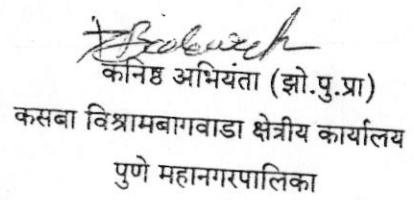 कनिष्ठ अभियंता (झो.पु.प्रा)
कसबा विश्रामबागवाडा क्षेत्रीय कार्यालय
पुणे महानगरपालिका